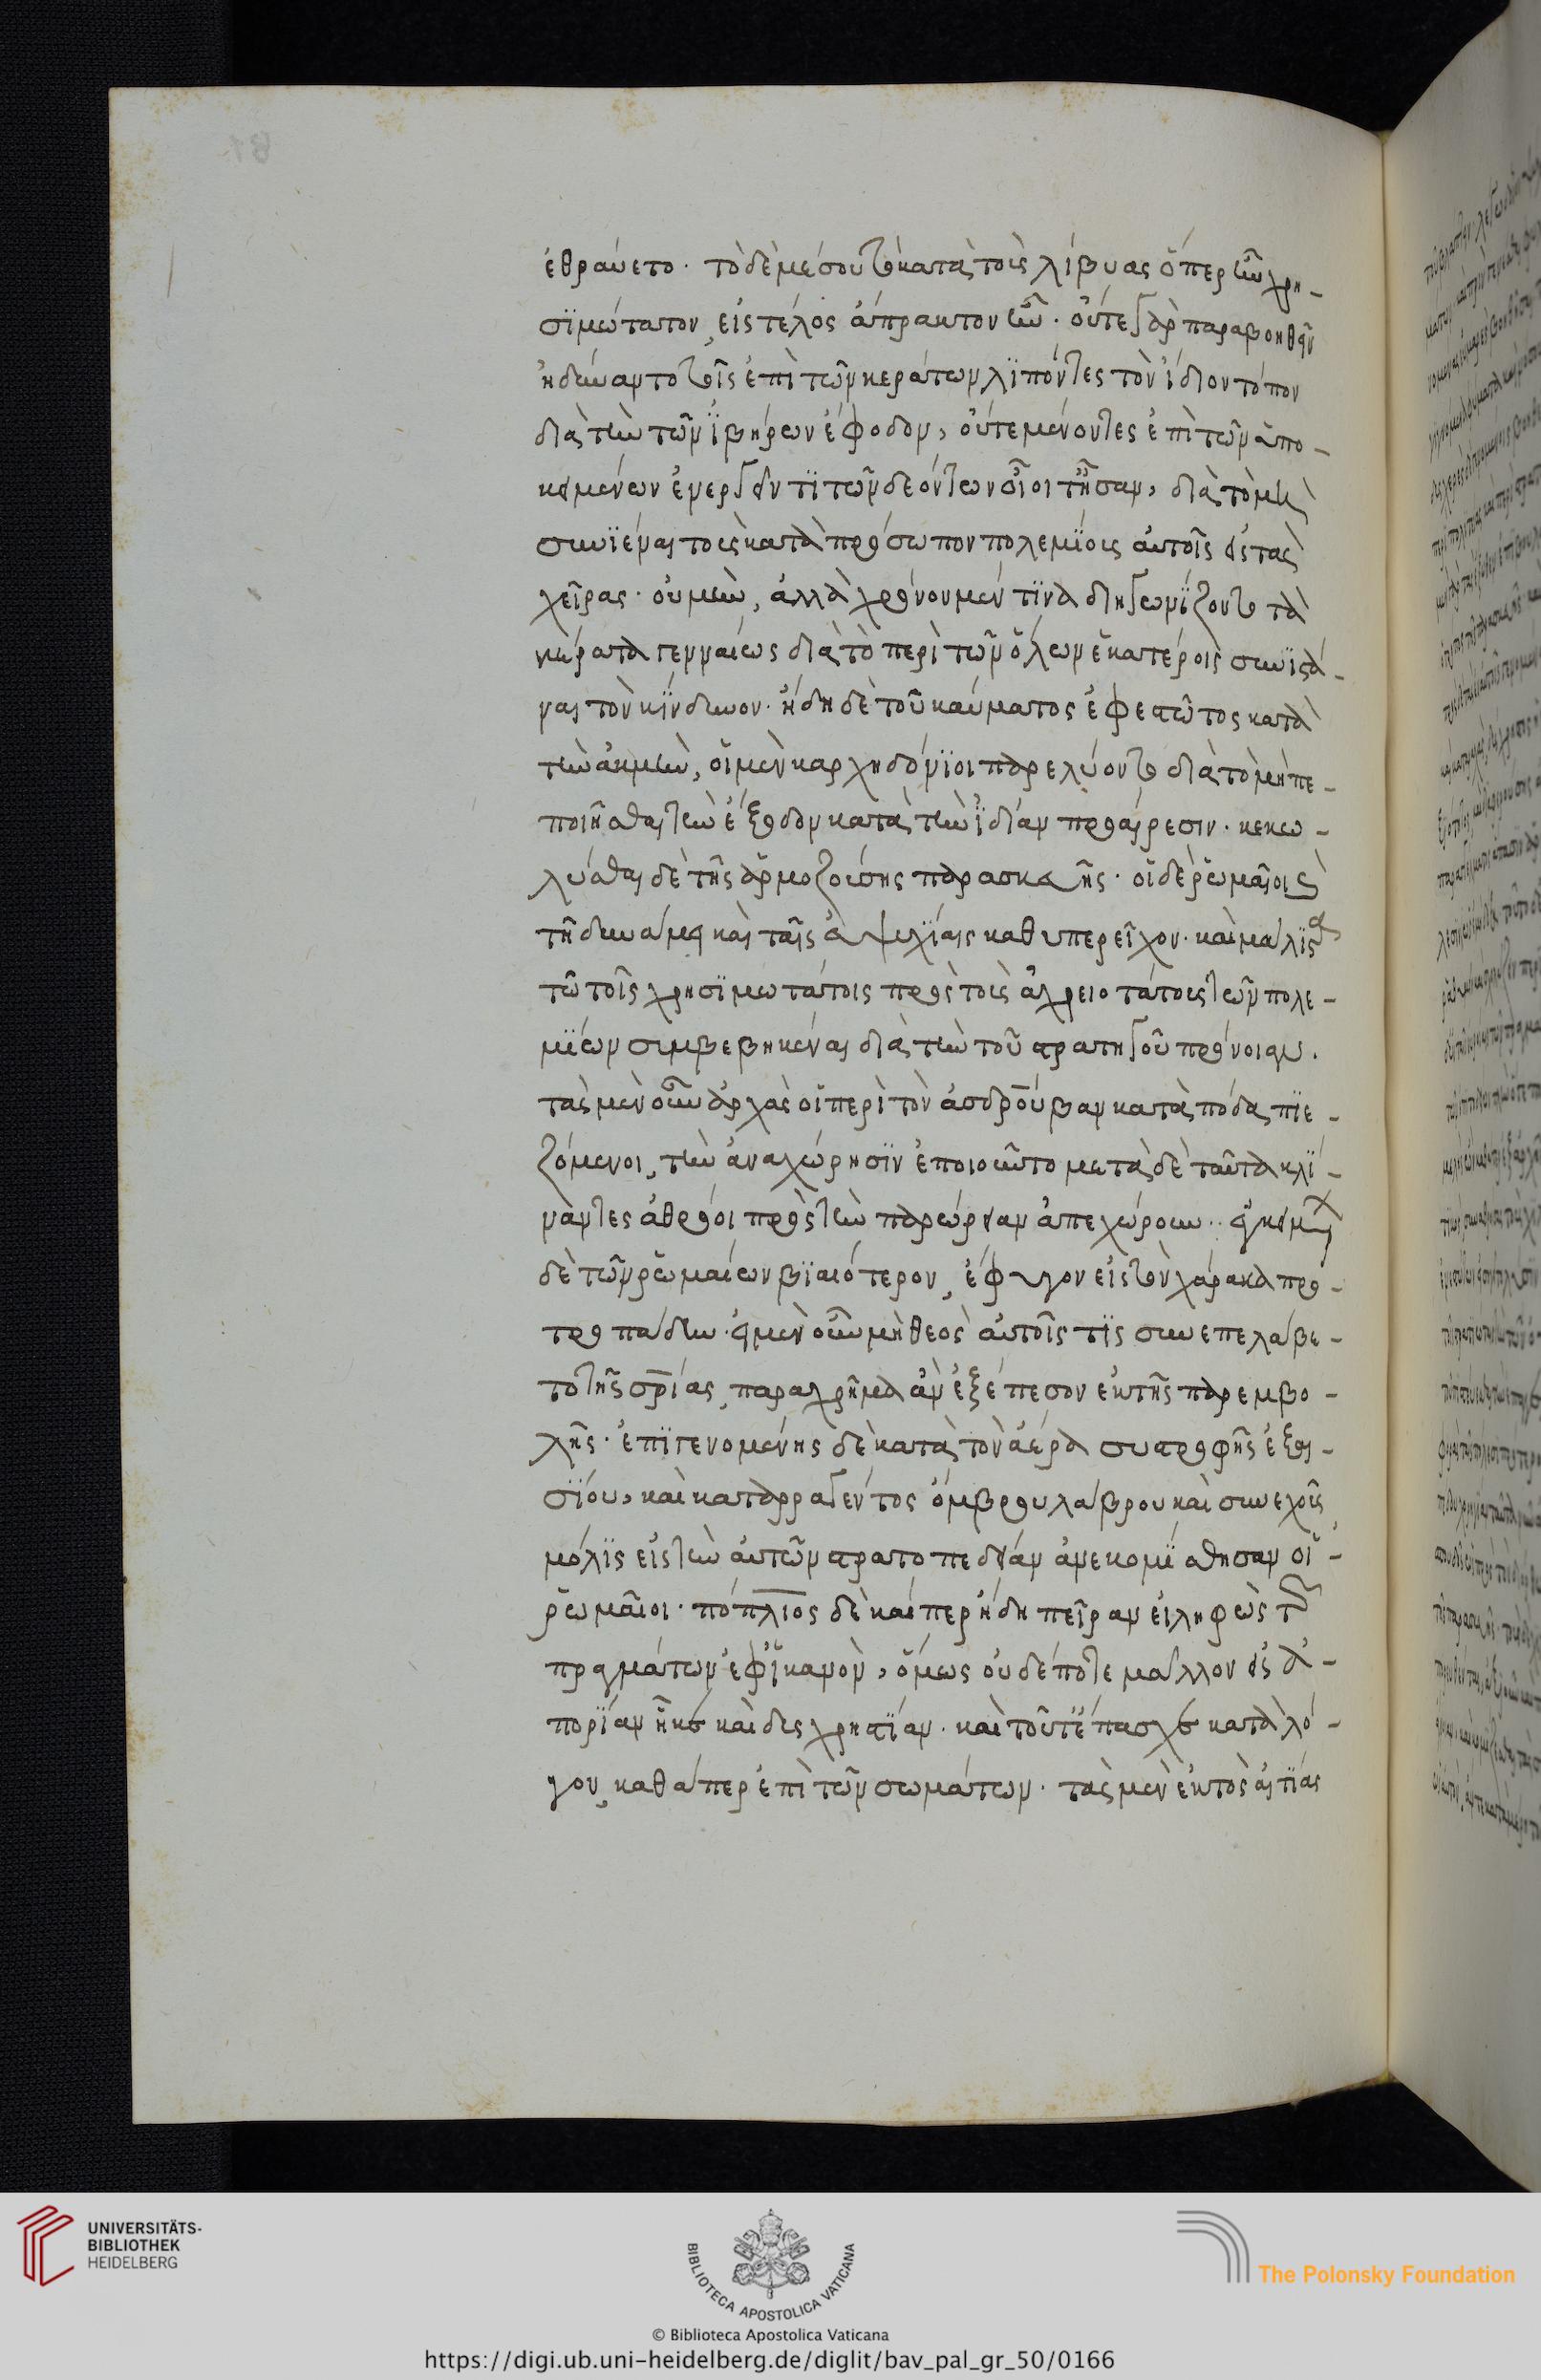 ἐθραύετο. τὸ δὲ μέσον τὸ κατὰ τοὺς λίβυας ὅπερ ἦν χρη-
σϊμώτατον, εἰς τέλος ἄπρακτον ἦν. οὔτε γὰρ παραβοηθεῖν
ἠδύναντο τοῖς ἐπὶ τῶν κεράτων λϊπόντες τὸν ἴδιον τόπον
διὰ τὴν τῶν ἰβήρων ἔφοδον, οὔτε μένοντες ἐπὶ τῶν ὑπο-
κειμένων ἐνεργεῖν τϊ τῶν δεόντων οἷοί τ' ἦσαν, διὰ τὸ μὴ
συνϊέναι τοὺς κατὰ πρόσωπον πολεμΐους αὐτοῖς εἰς τὰς
χεῖρας. οὐ μὴν, ἀλλὰ χρόνον μέν τϊνα διηγωνΐζοντο τὰ
κέρατα γενναίως διὰ τὸ περὶ τῶν ὅλων ἑκατέροις συνϊστά-
ναι τὸν κΐνδυνον. ἤδη δὲ τοῦ καύματος ἐφεστῶτος κατὰ
τὴν ἀκμὴν, οἱ μὲν καρχηδόνϊοι παρελύοντο διὰ τὸ μὴ πε-
ποιῆσθαι τὴν ἔξοδον κατὰ τὴν ἰδίαν προαίρεσιν. κεκω-
λύσθαι δὲ τῆς ἁρμοζούσης παρασκευῆς. οἱ δὲ ῥωμαῖοι καὶ
τῆ δυνάμει καὶ ταῖς εὐψυχΐαις καθυπερεῖχον. καὶ μάλϊστα
τῶ τοῖς χρησϊμωτάτοις πρὸς τοὺς ἀχρειοτάτους τῶν πολε-
μΐων συμβεβηκέναι διὰ τὴν τοῦ στρατηγοῦ πρόνοιαν.
τὰς μὲν οὖν ἀρχὰς οἱ περὶ τὸν ἀσδρούβαν κατὰ πόδα πϊε-
ζόμενοι, τὴν ἀναχώρησϊν ἐποιοῦντο μετὰ δὲ ταῦτα κλΐ-
ναντες ἀθρόοι πρὸς τὴν παρώρειαν ἀπεχώρουν. ἐγκειμένων
δὲ τῶν ῥωμαίων βϊαιότερον, ἔφυγον εἰς τὸν χάρακα προ-
τροπάδην. εἰ μὲν οὖν μὴ θεὸς αὐτοῖς τϊς συνεπελάβε-
το τῆς σρίας, παραχρῆμα ἂν ἐξέπεσον ἐκ τῆς παρεμβο-
λῆς. ἐπϊγενομένης δὲ κατὰ τὸν ἀέρα συστροφῆς ἐξαι-
σΐου, καὶ καταρραγέντος ὄμβρου λάβρου καὶ συνεχοῦς
μόλϊς εἰς τὴν αὐτῶν στρατοπεδείαν ἀνεκομΐσθησαν οἱ
ῥωμαῖοι. πόπλιος δὲ καίπερ ἤδη πεῖραν εἰληφὼς τῶν
πραγμάτων ἐφ' ἱκανὸν, ὅμως οὐδέποτε μᾶλλον εἰς ἀ-
πορΐαν ἧκε καὶ δυσχρηστΐαν. καὶ τοῦτ' ἔπασχε κατὰ λό-
γον, καθάπερ ἐπὶ τῶν σωμάτων. τὰς μὲν ἐκτὸς αἰτΐας
UNIVERSITÄTS-
BIBLIOTHEK
HEIDELBERG
BIBLIOTECA APOSTOLICA VATICANA
The Polonsky Foundation
© Biblioteca Apostolica Vaticana
https://digi.ub.uni-heidelberg.de/diglit/bav_pal_gr_50/0166